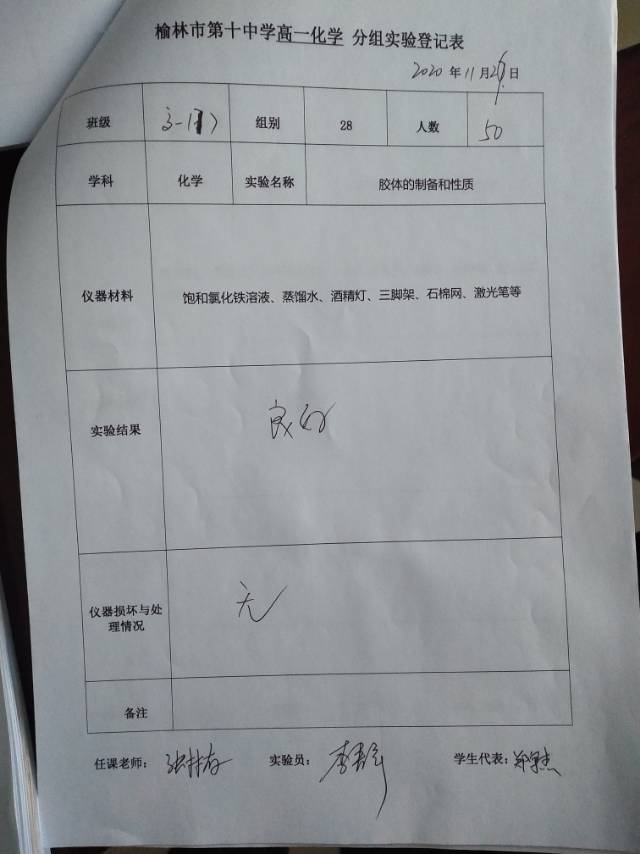 榆林市第十中学高一化学 分组实验登记表
2020 年 11 月 日
班级 高一 组别 28 人数 50
学科 化学 实验名称 胶体的制备和性质
仪器材料 饱和氯化铁溶液、蒸馏水、酒精灯、三脚架、石棉网、激光笔等
实验结果 良好
仪器损坏与处
理情况 无
备注
任课老师： 实验员： 学生代表：